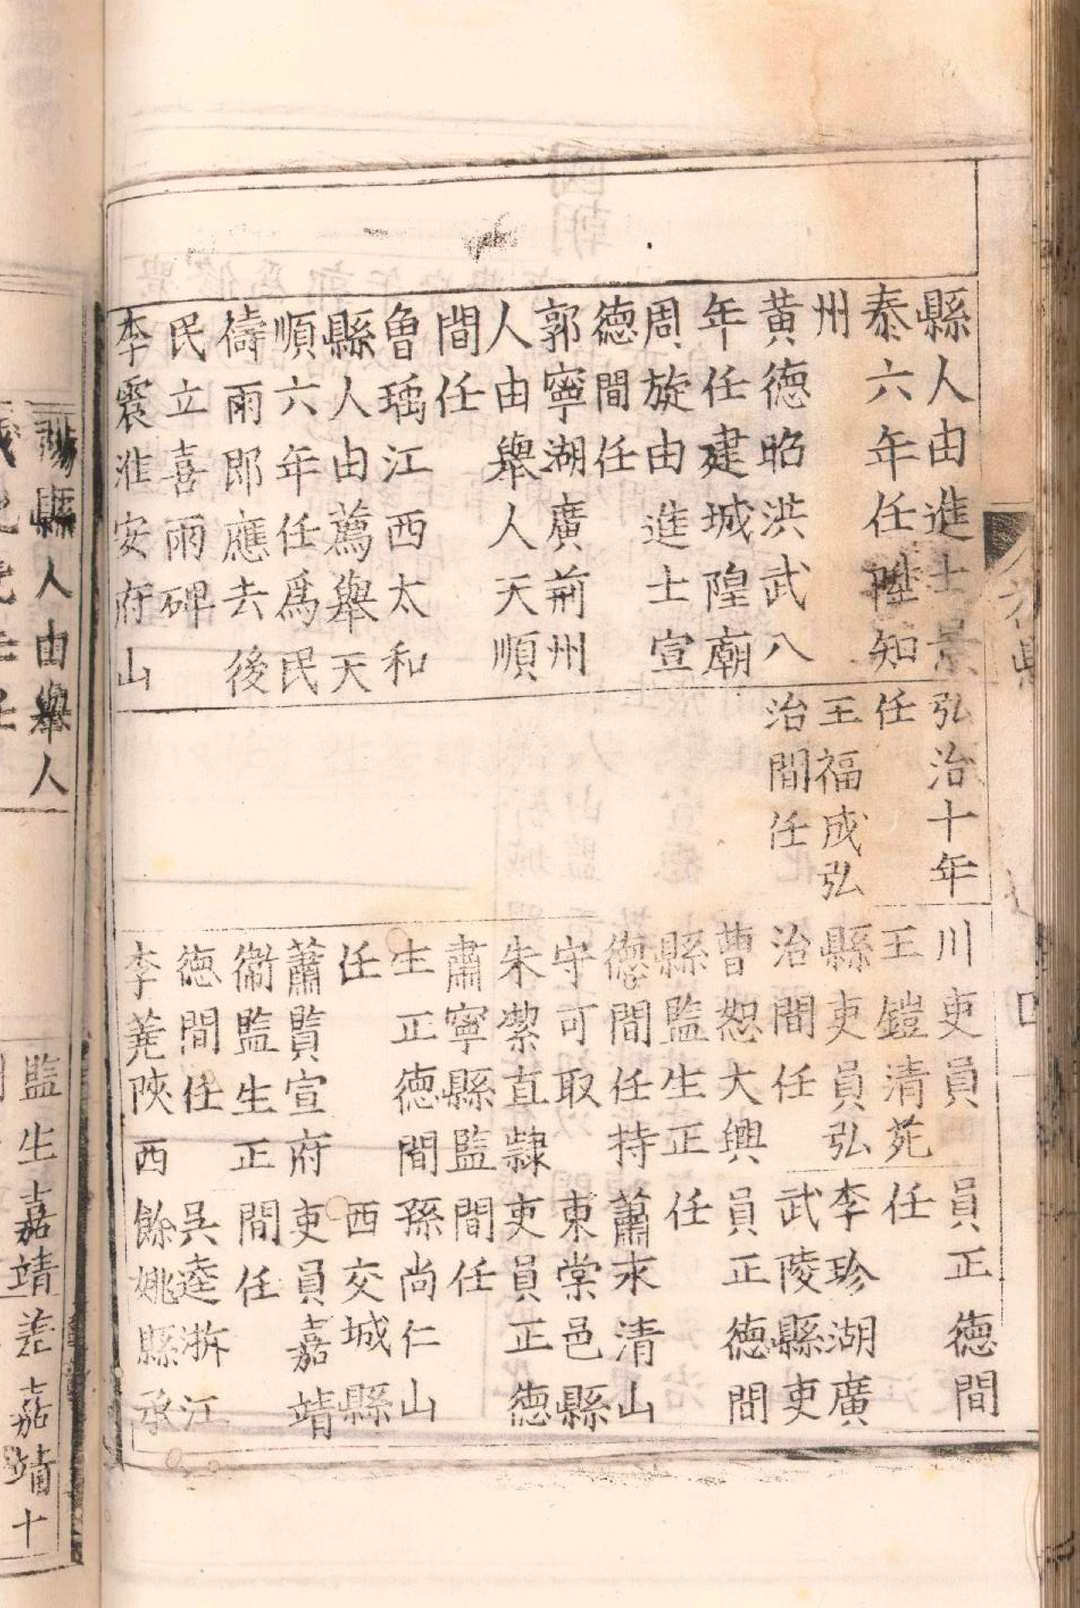 縣人由進士景
泰六年任陞知
州
黃德昭洪武八
年任建城隍廟
周旋由進士宣
德間任
郭寧湖廣荊州
人由舉人天順
間任
魯瑀江西太和
縣人由薦舉天
順六年任爲民
禱雨即應去後
民立喜雨碑
李震淮安府山
弘治十年
任
王福成弘
治間任
川吏員
王鎧清苑
縣吏員弘
治間任
曹恕大興
縣監生正
德間任持
守可取
朱㓗直隸
肅寧縣監
生正德間
任
蕭貭宣府
衞監生正
德間任
李蕘陝西
員正德間
任
李珍湖廣
武陵縣吏
員正德間
任
蕭永清山
東棠邑縣
吏員正德
間任
孫尚仁山
西交城縣
吏員嘉靖
間任
吳逵浙江
餘姚縣承
縣人由舉人
監生嘉靖
差嘉靖十